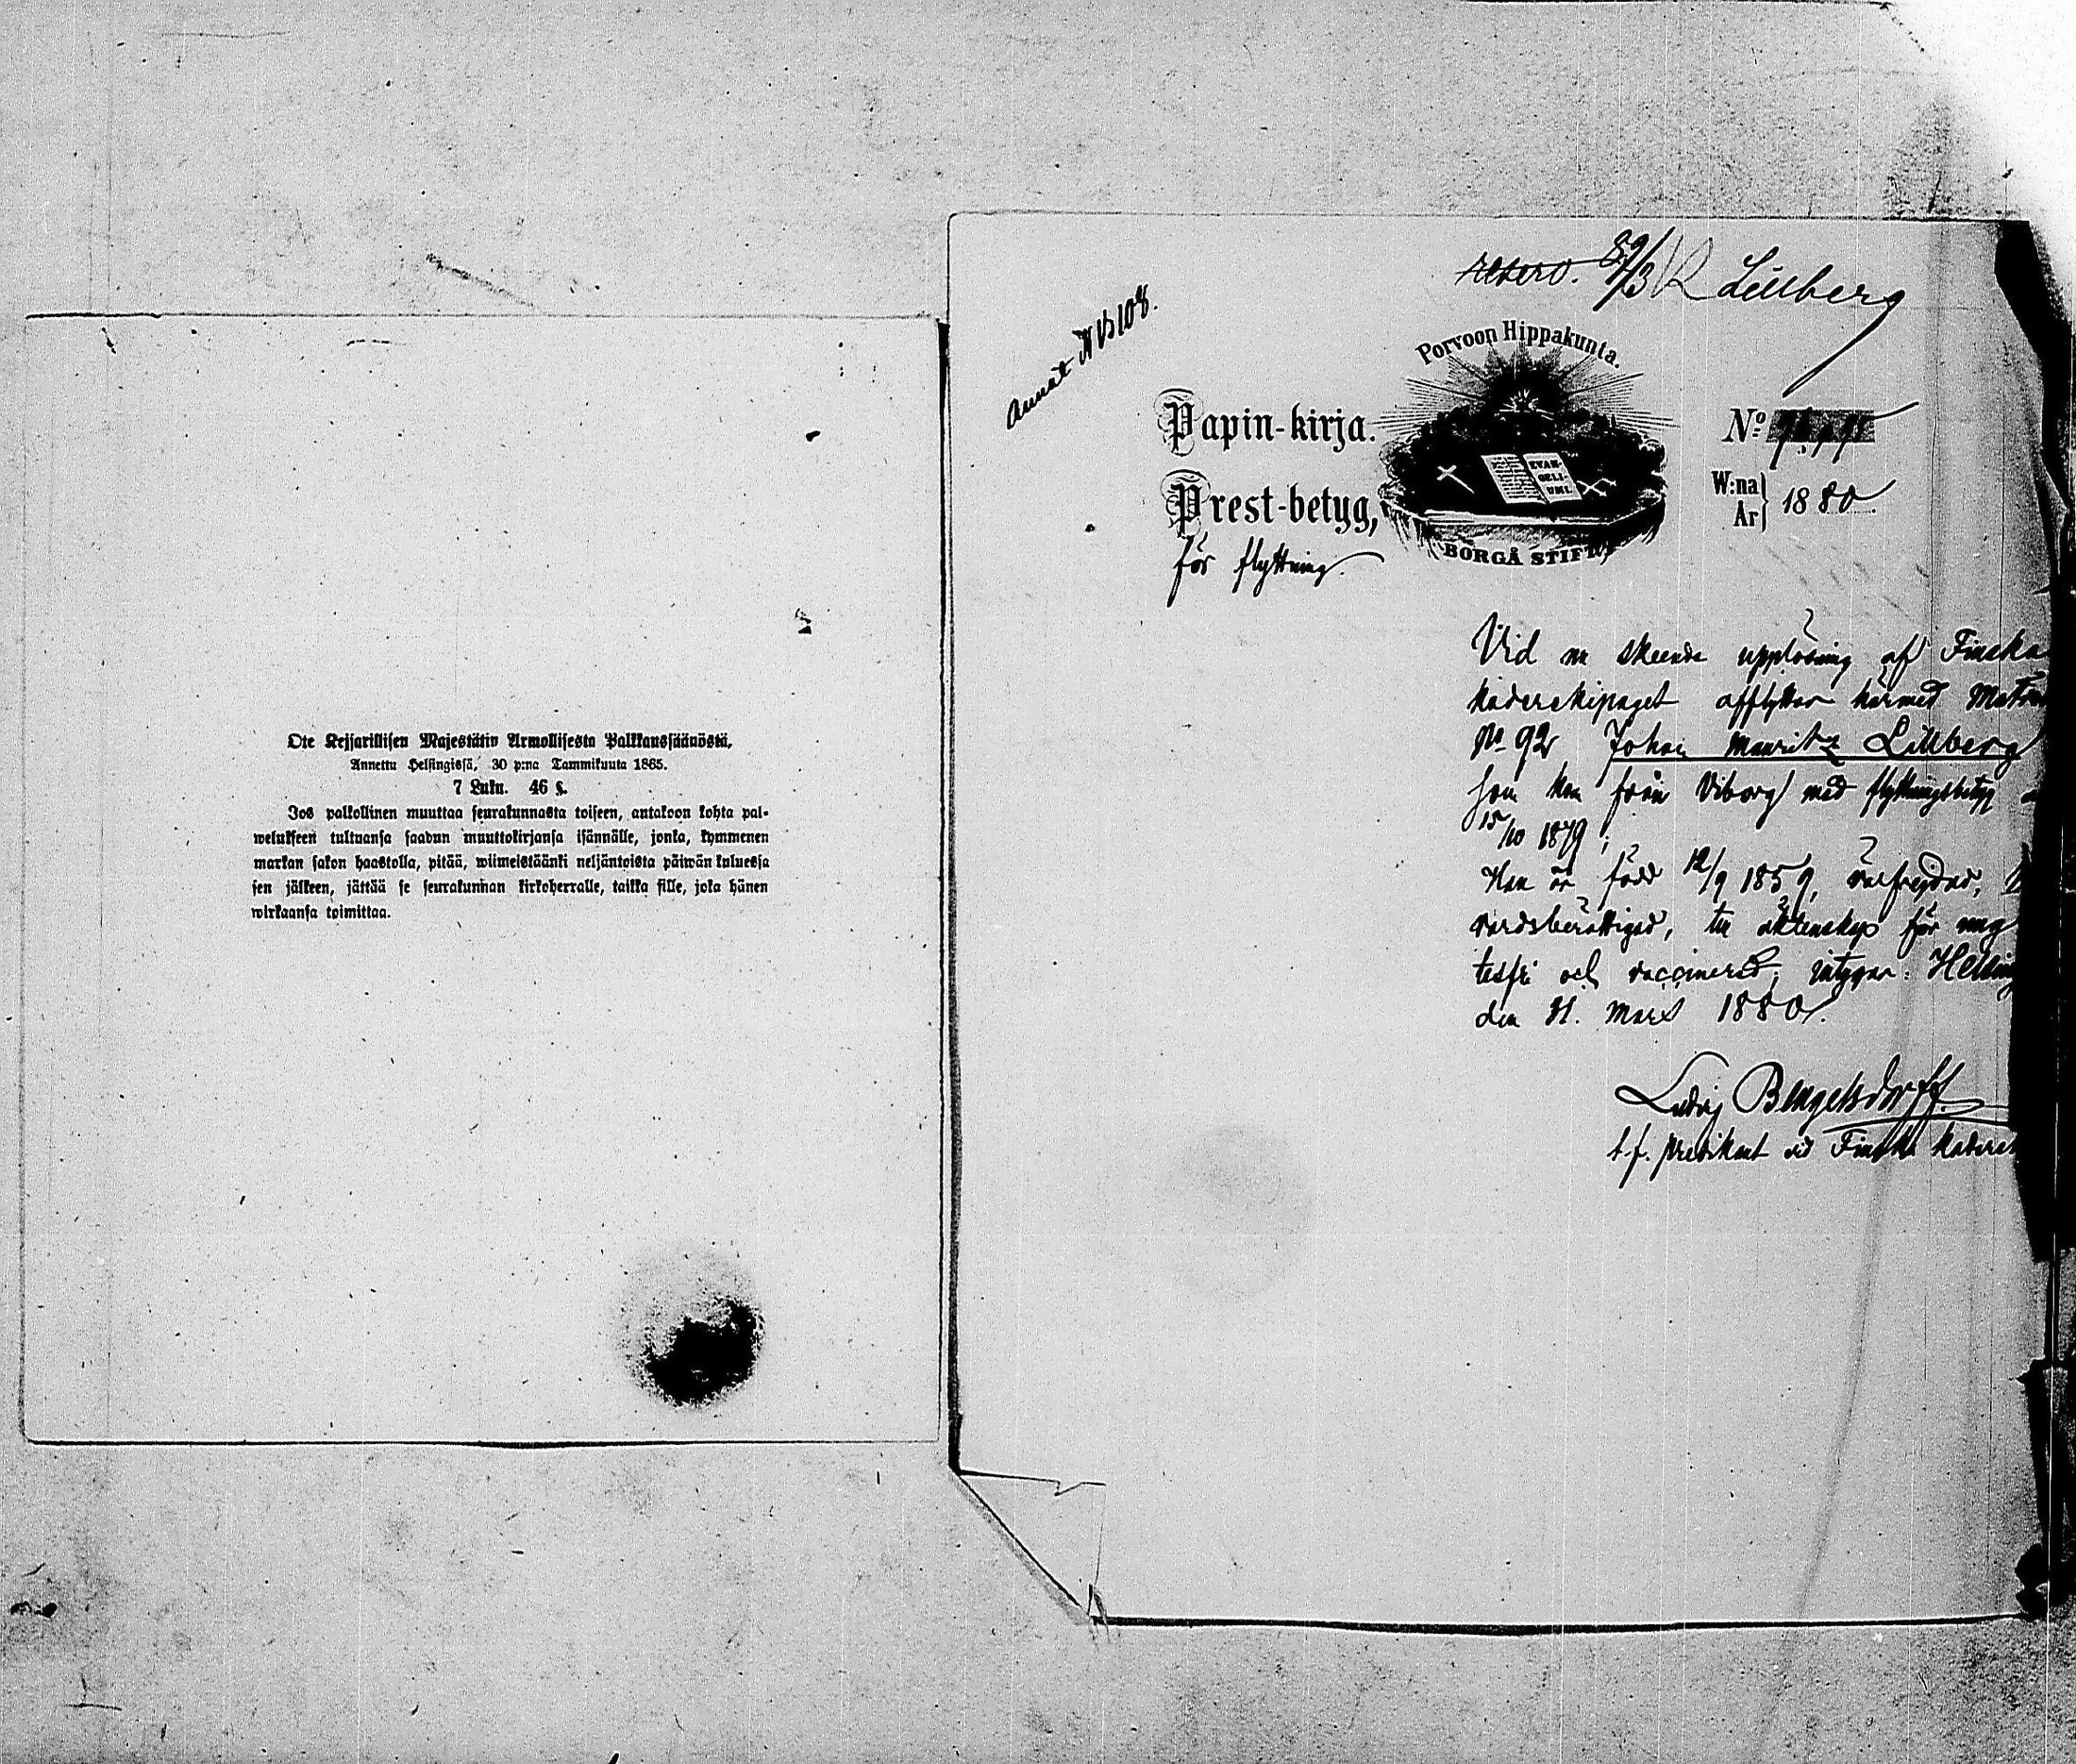 Ote Keisarillisen Majestätin Armollisesta Palkkaussäännöstä,
Annettu Helsingissä, 30 p:na Tammikuuta 1865.
7 Luku. 46 §.
Jos palkollinen muuttaa seurakunnasta toiseen, antakoon kohta pal-
welukseen tultuansa saadun muuttokirjansa isännälle, jonka, kymmenen
markan sakon haastolla, pitää, wiimeistäänki neljäntoista päiwän kuluessa
sen jälkeen, jättää se seurakunnan kirkoherralle, taikka sille, joka hänen
wirkaansa toimittaa.
Lillberg
Annat N B 108.
Porvoon Hippakunta.
Papin-kirja.
Prest-betyg,
för flyttning.
EVAN-
GELI-
UMI.
BORGÅ STIFT
No
W:na
År
1880
Vid nu skeende upplösning af Finska
kadersekipaget afflyttar härmed
No 92 Johan Mauritz Lillberg
som kom från Viborg med flyttningsbetyg
15/10 1879;
Han är född 12/9 1859, välfrejdad,
vardsberättigad, till äktenskap för ung
tesfri och vaccinerad, intygar. Helsing
den 31. Mars 1880.
Ludvig Bengelsdorff
t.f. predikant vid Finska kaders